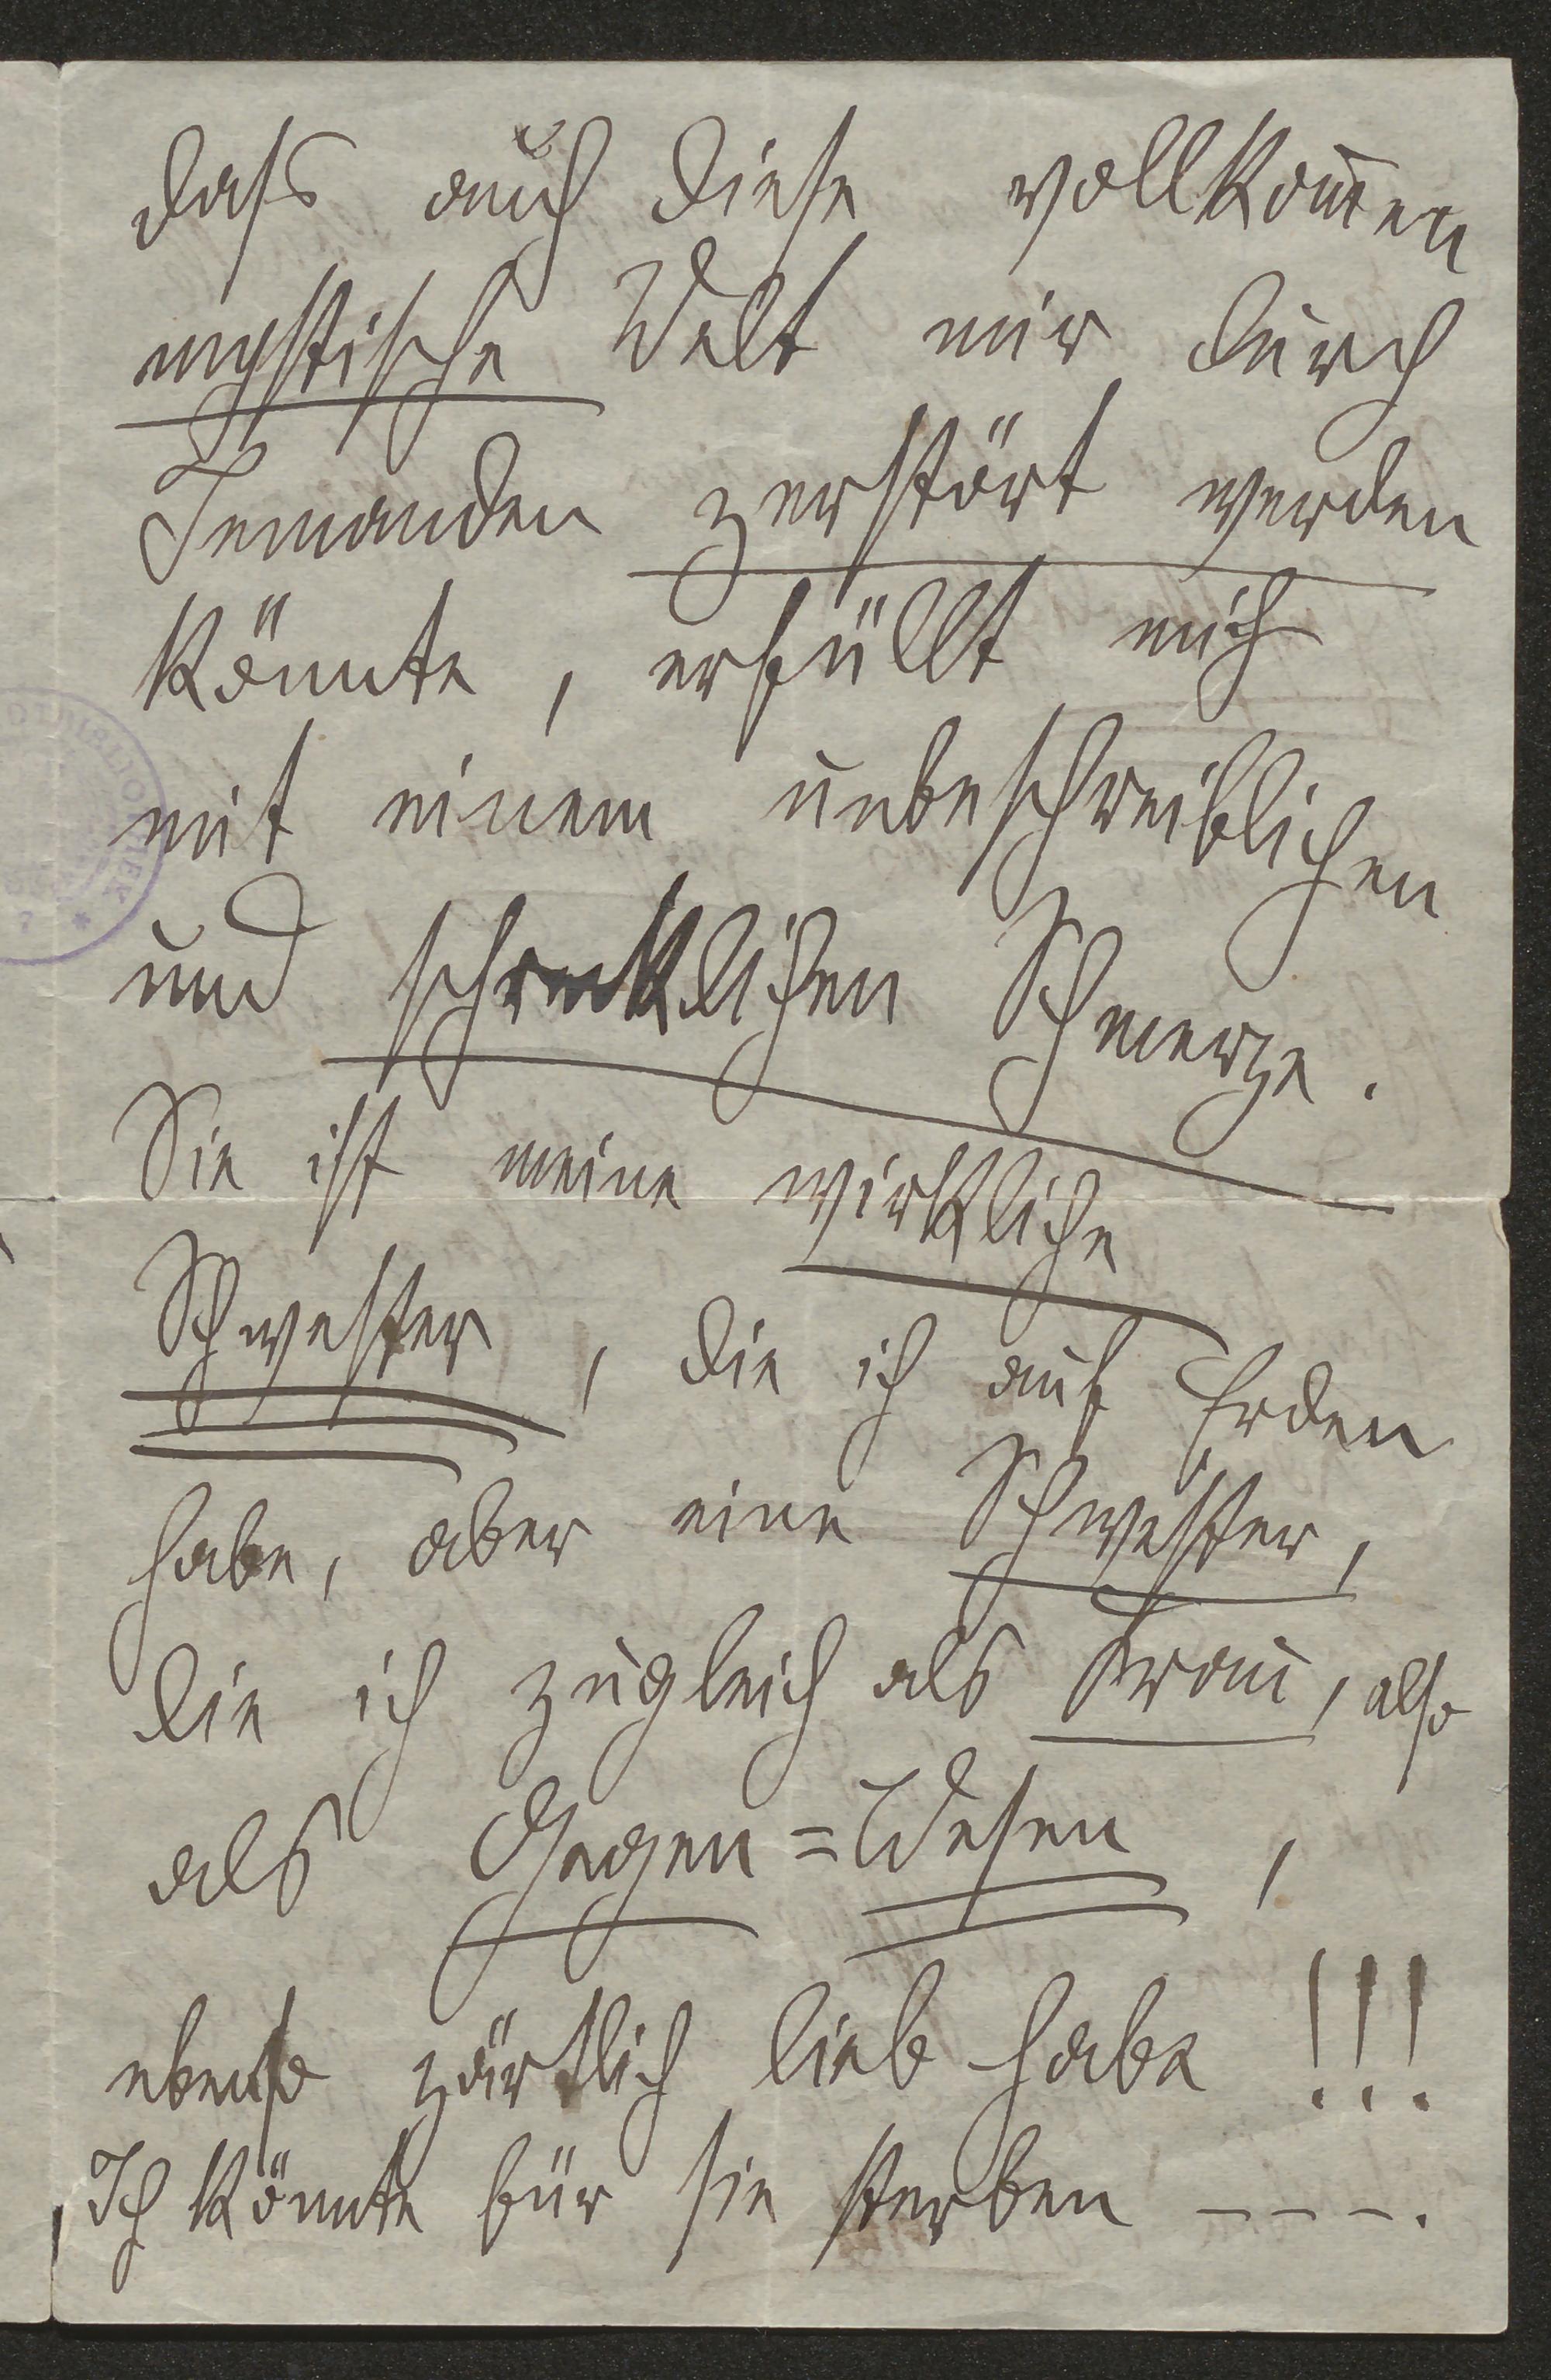 dass auch diese vollkom̄en
mystische Welt mir durch
Jemanden zerstört werden
könnte, erfüllt mich
mit einem unbeschreiblichen
und schrecklichen Schmerze.
Sie ist meine wirkliche
Schwester, die ich auf Erden
habe, aber eine Schwester,
die ich zugleich als Frau, also
als Gegen=Wesen,
ebenso zärtlich lieb habe !!!
Ich könnte für sie sterben ---.